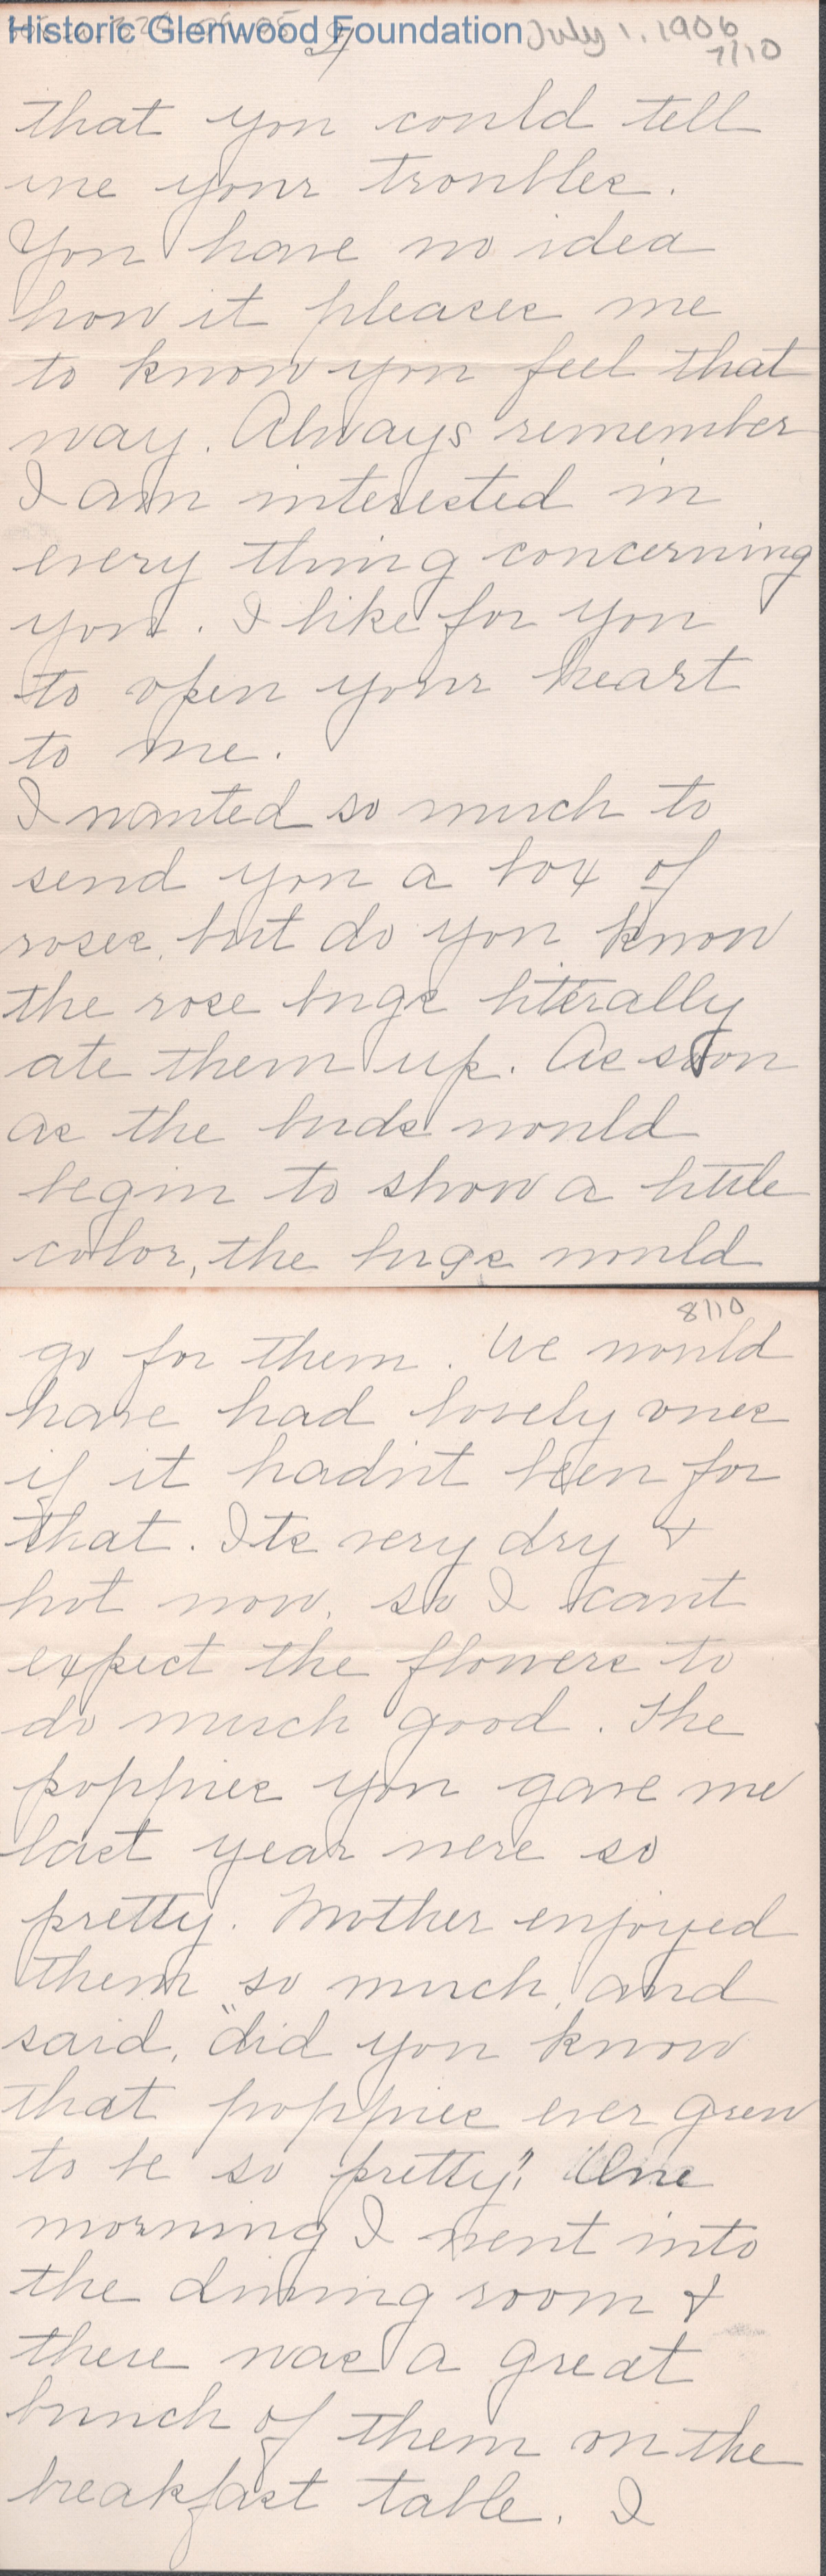 Historic Glenwood Foundation
July 1, 1906
7/10
that you could tell
me your troubles.
You have no idea
how it pleases me
to know you feel that
way. Always remember
I am interested in
every thing concerning
you. I like for you
to open your heart
to me.
I wanted so much to
send you a box of
roses, but do you know
the rose bugs literally
ate them up. As soon
as the buds would
begin to show a little
color, the bugs would
8/10
go for them. We would
have had lovely ones
if it hadn't been for
that. Its very dry &
hot now, so I cant
expect the flowers to
do much good. The
poppies you gave me
last year were so
pretty. Mother enjoyed
them so much, and
said, "did you know
that poppies ever grew
to be so pretty". One
morning I went into
the dining room &
there was a great
bunch of them on the
breakfast table. I